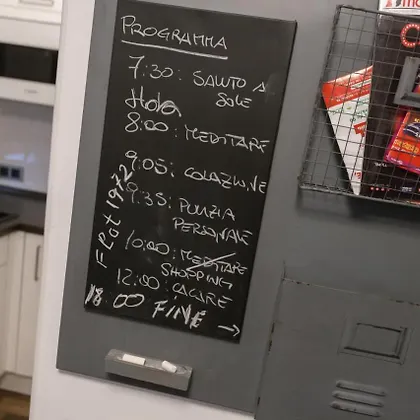 PROGRAMMA
7:30: SALUTO AL
SOLE
Hola
8:00: MEDITARE
9:05: COLAZIONE
9:35: PULIZIA
PERSONALE
10:00: MEDITARE
SHOPPING
12:00: CACARE
18:00 FINE →
Flat 1972